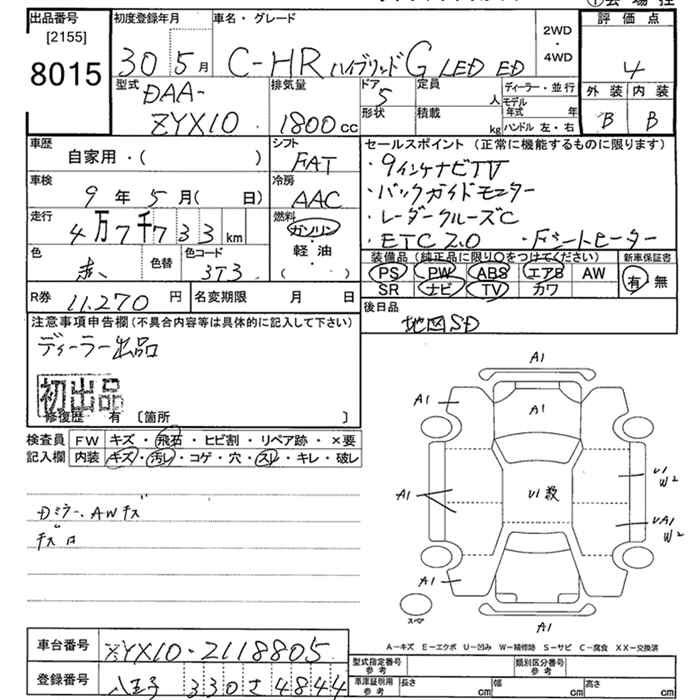 出品番号 初度登録年月 車名・グレード 評価点
[2155]
8015
30 5月 C-HR ハイブリッド G LED ED
2WD
・
4WD
4
外装 内装
B B
型式 排気量 ドア 定員 ディーラー・並行
DAA-
ZYX10 1800cc 5 人
モデル
年式 年
形状 積載 kg ハンドル 左・右
車歴 自家用・( ) シフト FAT
車検 9年 5月( 日) 冷房 AAC
走行 4万7千733km 燃料 ガソリン・軽油
( )
色 赤 色替 色コード 3T3
R券 11,270円 名変期限 月 日
セールスポイント(正常に機能するものに限ります)
・9インチナビTV
・バックガイドモニター
・レーダークルーズC
・ETC2.0 ・シートヒーター
装備品(純正品に限り○をつけてください) 新車保証書
PS PW ABS エアB AW 有・無
SR ナビ TV カワ
後日品
地図SD
注意事項申告欄(不具合内容等は具体的に記入して下さい)
ディーラー出品
初出品
修復歴 有 〔箇所 〕
検査員 FW キズ・飛石・ヒビ割・リペア跡・×要
記入欄 内装 キズ・汚レ・コゲ・穴・スレ・キレ・破レ
Dミラー、AWキズ
A1
A1
A1
A1
U1数
U1
W2
UA1
W2
A1
A1
スペア
A-キズ E-エクボ U-凹み W-補修跡 S-サビ C-腐食 XX-交換済
車台番号 ZYX10-2118805
登録番号 八王子 330さ4844
型式指定番号 類別区分番号
参考 参考
車庫証明用 長さ 幅 高さ
参考 cm cm cm